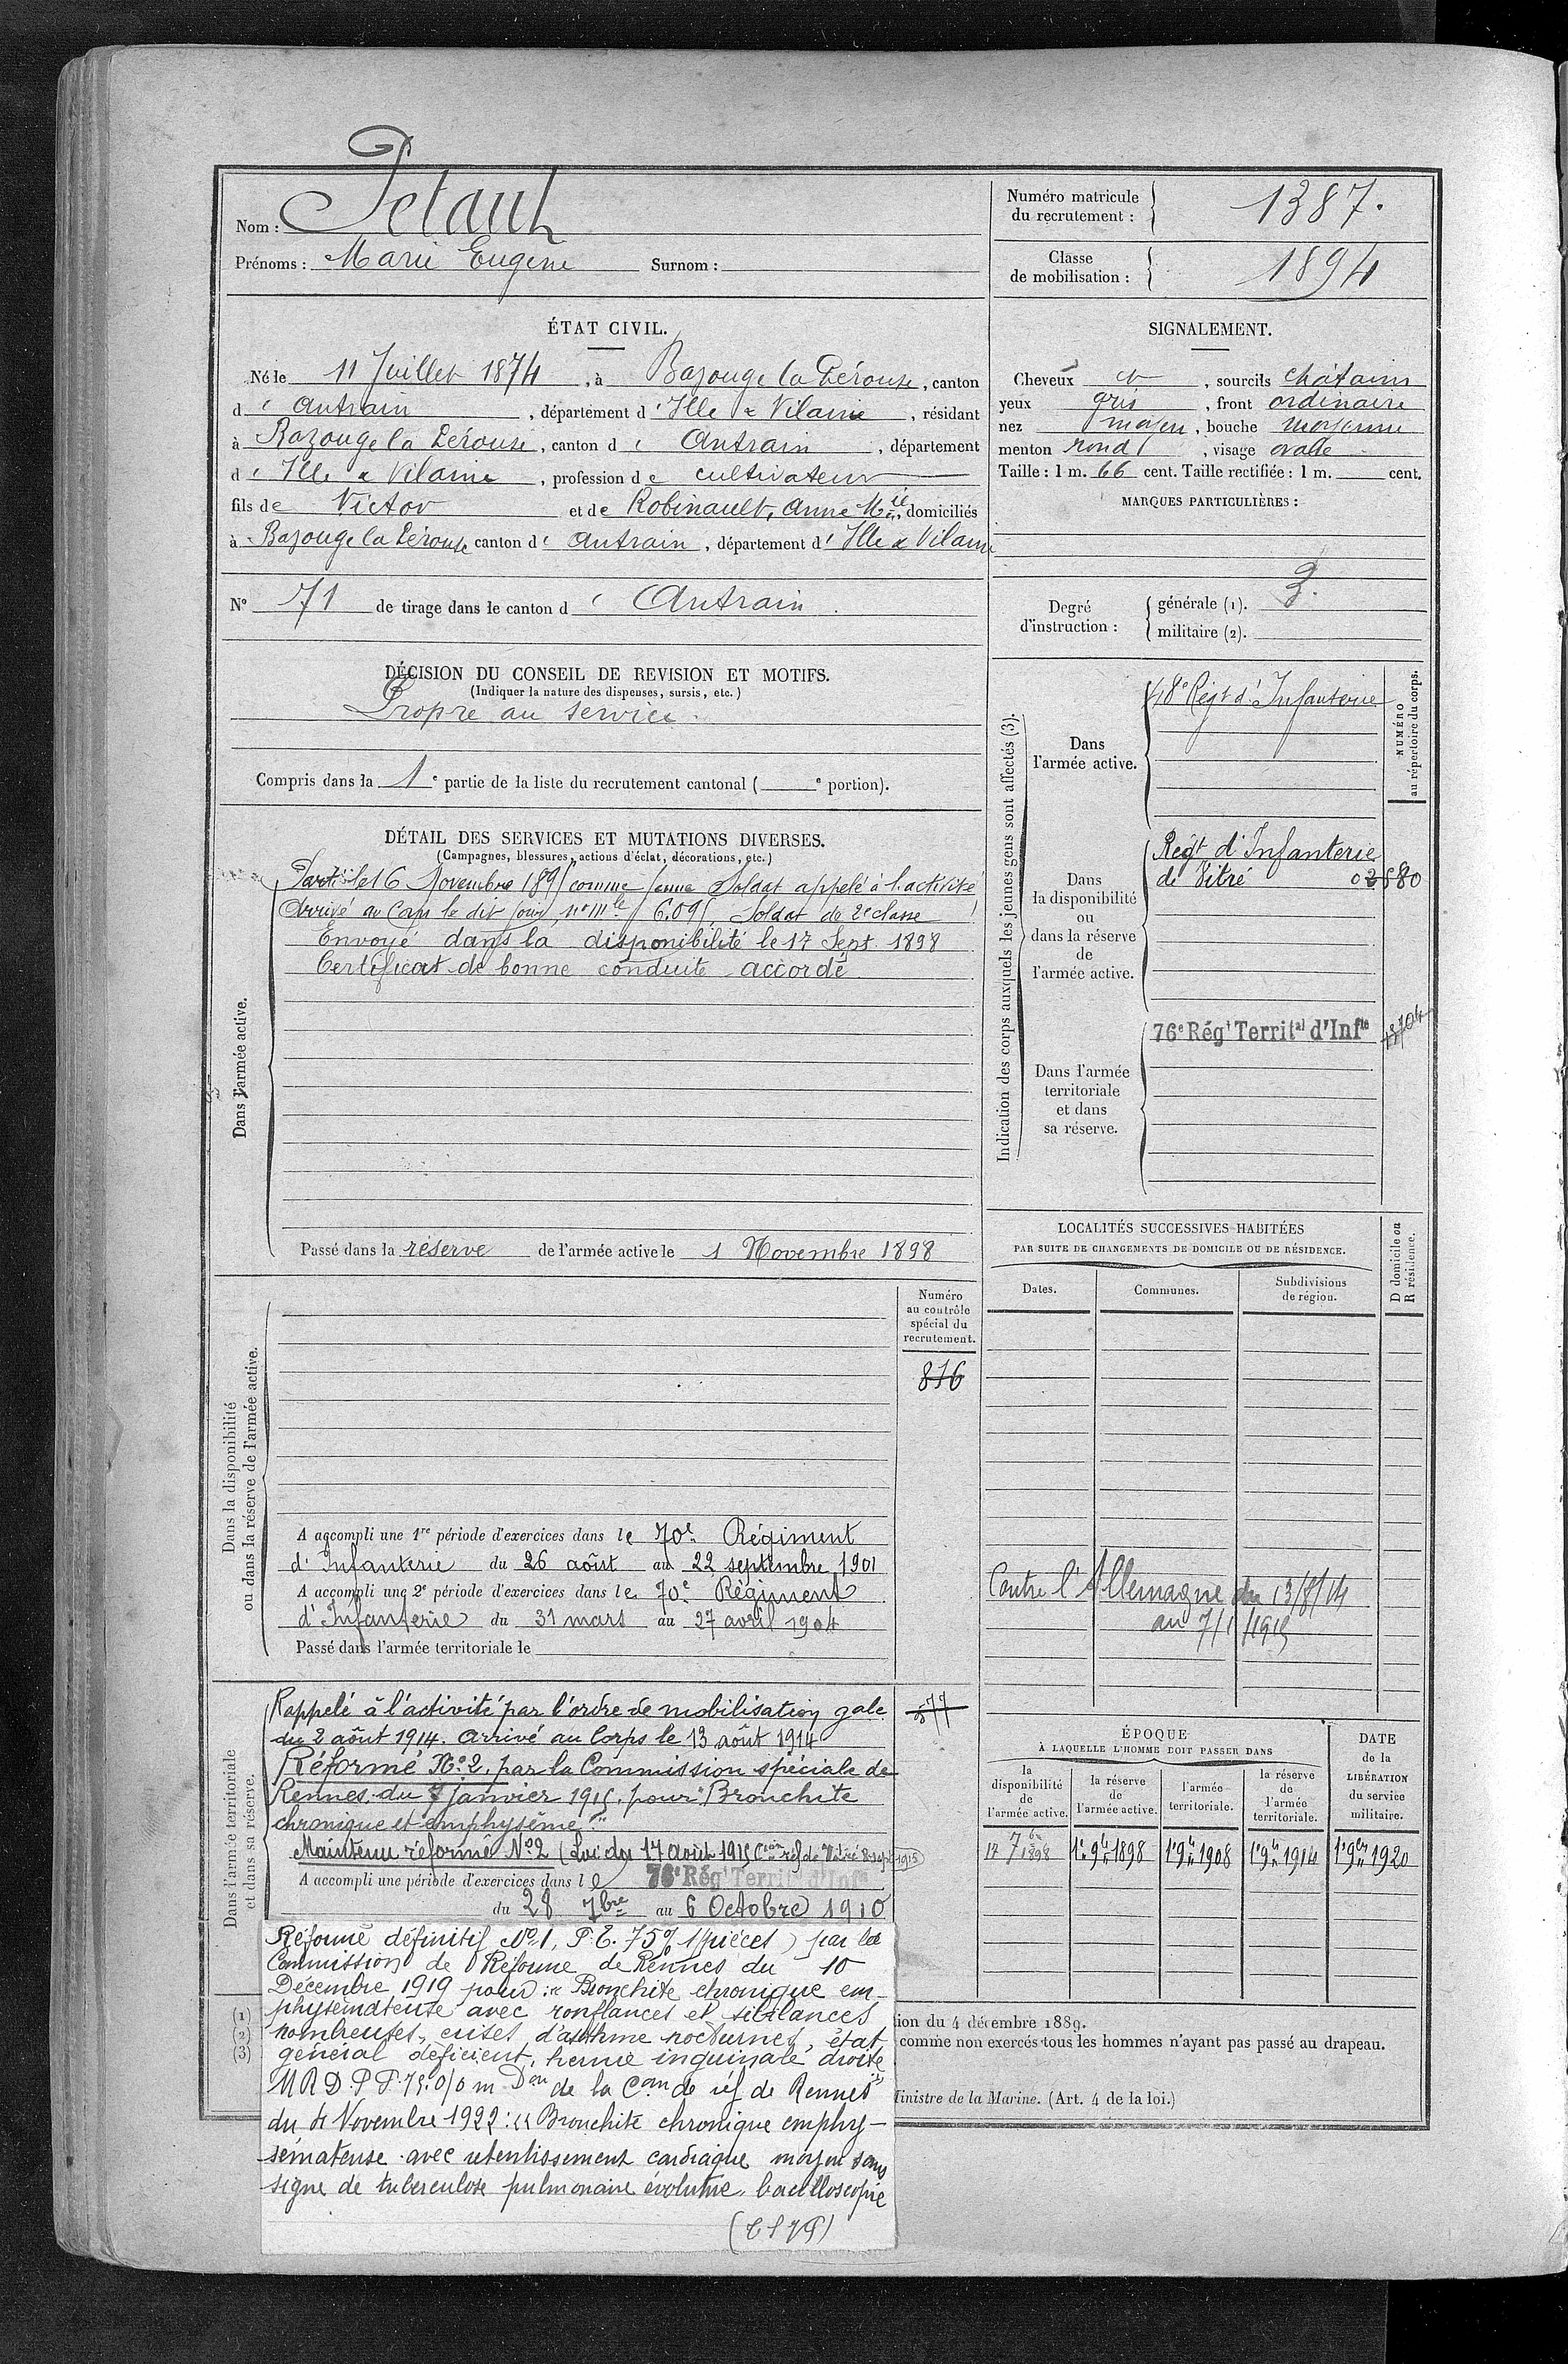 Nom : Petault
Prénoms : Marie Eugène Surnom :
Numéro matricule du recrutement : 1387.
Classe de mobilisation : 1894
ÉTAT CIVIL.
Né le 11 Juillet 1874, à Bazouge la Pérouse, canton
d' Antrain, département d'Ille & Vilaine, résidant
à Bazouge la Pérouse, canton d' Antrain, département
d' Ille & Vilaine, profession de cultivateur
fils de Victor et de Robinault, Anne Mie, domiciliés
à Bazouge la Pérouse canton d' Antrain, département d' Ille & Vilaine
N° 71 de tirage dans le canton d' Antrain.
SIGNALEMENT.
Cheveux et, sourcils châtains
yeux gris, front ordinaire
nez moyen, bouche moyenne
menton rond, visage ovale
Taille : 1 m. 66 cent. Taille rectifiée : 1 m. cent.
MARQUES PARTICULIÈRES :
Degré d'instruction : générale (1). 3.
militaire (2).
DÉCISION DU CONSEIL DE REVISION ET MOTIFS.
(Indiquer la nature des dispenses, sursis, etc.)
Propre au service.
Compris dans la 1e partie de la liste du recrutement cantonal ( e portion).
DÉTAIL DES SERVICES ET MUTATIONS DIVERSES.
(Campagnes, blessures, actions d'éclat, décorations, etc.)
Dans l'armée active.
Parti le 16 Novembre 1895 comme jeune Soldat appelé à l'activité
Arrivé au Corps le dit jour, n° mle 6.095, Soldat de 2e classe
Envoyé dans la disponibilité le 17 Sept. 1898
Certificat de bonne conduite accordé
Passé dans la réserve de l'armée active le 1 Novembre 1898
Indication des corps auxquels les jeunes gens sont affectés (3).
NUMÉRO au répertoire du corps.
Dans l'armée active.
48e Régt d'Infanterie
Dans la disponibilité ou dans la réserve de l'armée active.
Régt d'Infanterie
de Vitré
Dans l'armée territoriale et dans sa réserve.
76e Régt Territal d'Infie
LOCALITÉS SUCCESSIVES HABITÉES
PAR SUITE DE CHANGEMENTS DE DOMICILE OU DE RÉSIDENCE.
Dates. Communes. Subdivisions de région. D domicile ou R résidence.
Contre l'Allemagne du 13/8/14
au 7/1/1915
Dans la disponibilité ou dans la réserve de l'armée active.
Numéro au contrôle spécial du recrutement.
816
A accompli une 1re période d'exercices dans le 70e Régiment
d'Infanterie du 26 août au 22 septembre 1901
A accompli une 2e période d'exercices dans le 70e Régiment
d'Infanterie du 31 mars au 27 avril 1904
Passé dans l'armée territoriale le
Dans l'armée territoriale et dans sa réserve.
Rappelé à l'activité par l'ordre de mobilisation gale
du 2 août 1914. Arrivé au Corps le 13 août 1914
Réformé N° 2. par la Commission spéciale de
Rennes du 7 janvier 1915. pour "Bronchite
chronique et emphysème"
Maintenu réformé N° 2 (Loi du 17 août 1915 Cion réf de Vitré 8 sept 1915)
A accompli une période d'exercices dans le 76e Régt Territal d'Infie
du 28 7bre au 6 Octobre 1910
Réformé définitif N° 1, P.E. 75% 1 (pièces) par la
Commission de Réforme de Rennes du 10
Décembre 1919 pour : "Bronchite chronique em-
physémateuse avec ronflances et sibilances
nombreuses, crises d'asthme nocturnes, état
général déficient, hernie inguinale droite
M R D. P P. 75. 0/0 m Don de la Com de réf de Rennes
du 4 Novembre 1922 : "Bronchite chronique emphy-
semateuse avec retentissement cardiaque moyen sans
signe de tuberculose pulmonaire évolutive, bacilloscopie
ÉPOQUE
À LAQUELLE L'HOMME DOIT PASSER DANS
la disponibilité de l'armée active. la réserve de l'armée active. l'armée territoriale. la réserve de l'armée territoriale.
DATE de la LIBÉRATION du service militaire.
17 7bre 1898 1er 9bre 1898 1er 9bre 1908 1er 9bre 1914 1er 9bre 1920
(1)
(2)
(3)
tion du 4 décembre 1889.
comme non exercés tous les hommes n'ayant pas passé au drapeau.
Ministre de la Marine. (Art. 4 de la loi.)